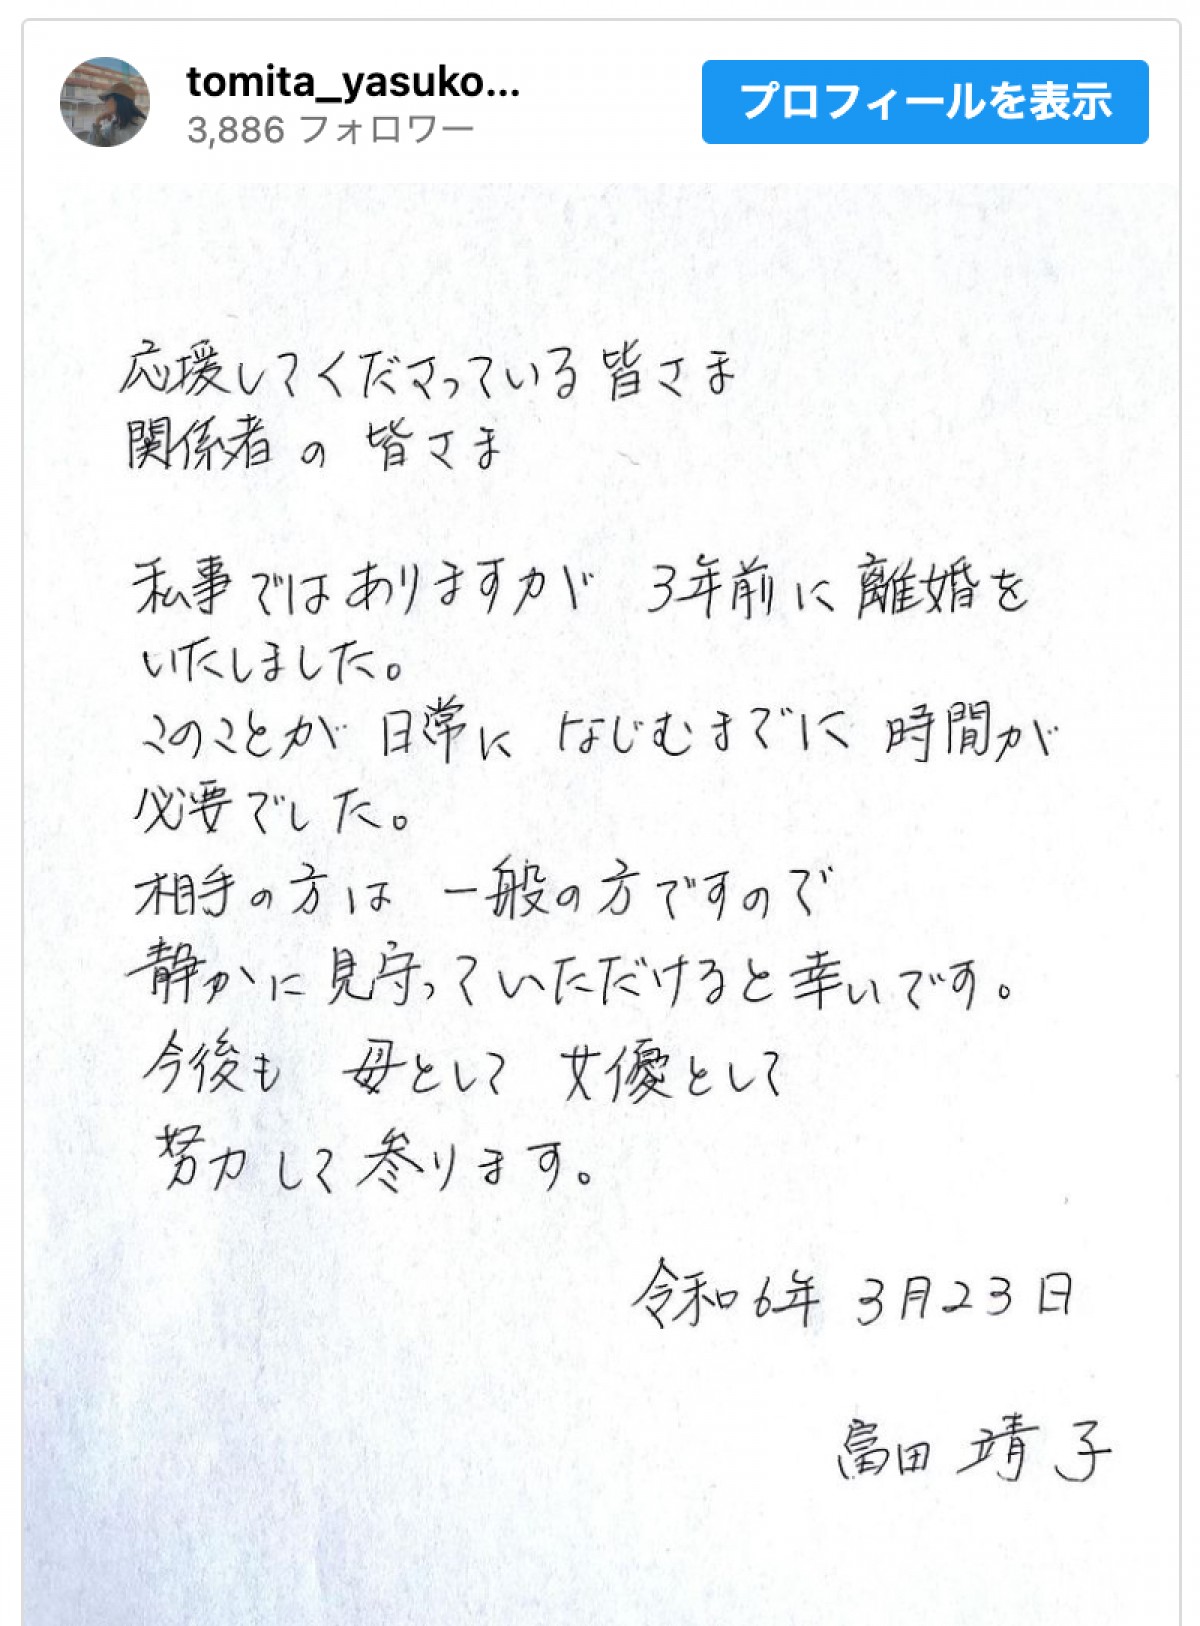 tomita_yasuko...
3,886 フォロワー
プロフィールを表示
応援してくださっている皆さま
関係者の皆さま
私事ではありますが 3年前に離婚を
いたしました。
このことが 日常に なじむまでに 時間が
必要でした。
相手の方は 一般の方ですので
静かに見守っていただけると幸いです。
今後も 母として 女優として
努力して参ります。
令和6年 3月23日
富田 靖子